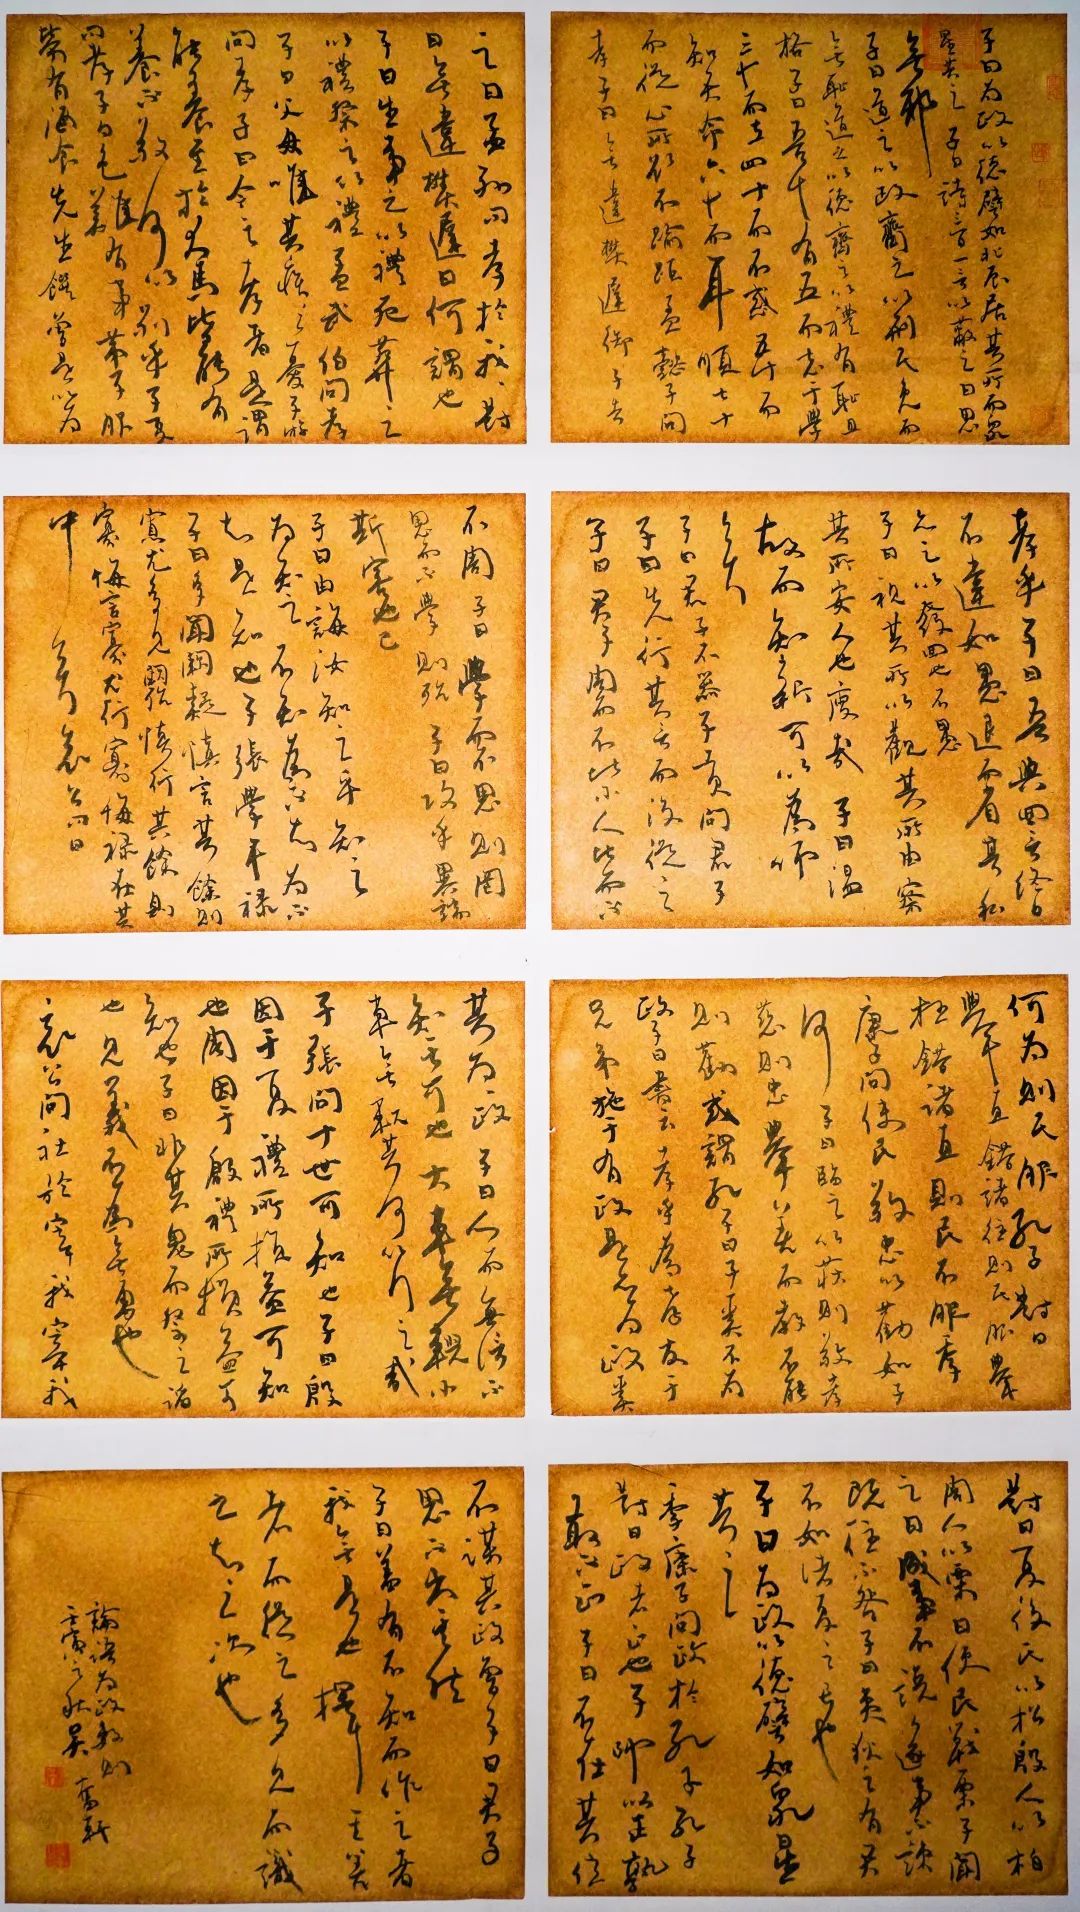 子曰为政以德譬如北辰居其所而众
星共之 子曰詩三百一言以蔽之曰思
無邪
子曰道之以政齊之以刑民免而
無恥道之以德齊之以禮有恥且
格子曰吾十有五而志于學
三十而立四十而不惑五十而
知天命六十而耳順七十
而從心所欲不踰距孟懿子問
孝子曰無違樊遲御子告
之曰孟孫問孝於我我對
曰無違樊遲曰何謂也
子曰生事之以禮死葬之
以禮祭之以禮孟武伯問孝
子曰父母唯其疾之憂子游
問孝子曰今之孝者是謂
能養至於犬馬皆能有
養不敬何以別乎子夏
問孝子曰色難有事弟子服
勞有酒食先生饌曾是以为
孝乎子曰吾與回言終日
不違如愚退而省其私
亦足以發回也不愚
子曰視其所以觀其所由察
其所安人也廋哉 子曰溫
故而知新可以為师
矣
子曰君子不器子貢問君子
子曰先行其言而後從之
子曰君子周而不比小人比而不
不周 子曰學而不思則罔
思而不學則殆 子曰攻乎異端
斯害也已
子曰由誨汝知之乎知之
為知之不知為不知為不
知是知也子張學干祿
子曰多聞闕疑慎言其餘則
寡尤多見闕殆慎行其餘則
寡悔言寡尤行寡悔祿在其
中矣哀公問曰
何为則民服孔子對曰
舉直錯諸枉則民服舉
枉錯諸直則民不服季
康子問使民敬忠以勸如之
何 子曰臨之以莊則敬孝
慈則忠舉善而教不能
則勸或謂孔子曰子奚不为
政子曰書云孝乎為孝友于
兄弟施于有政是亦为政奚
其为政 子曰人而無信不
知其可也大車無輗小
車無軏其何以行之哉
子張問十世可知也子曰殷
因于夏禮所損益可知
也周因于殷禮所損益可
知也子曰非其鬼而祭之諂
也見義不為無勇也
哀公問社於宰我宰我
對曰夏後氏以松殷人以柏
周人以栗曰使民戰栗子聞
之曰成事不說遂事不諫
既往不咎子曰夷狄之有君
不如诸夏之亡也
子曰为政以德譬如眾星
共之
季康子問政於孔子孔子
對曰政者正也子帅以正孰
敢不正 子曰不在其位
不謀其政曾子曰君子
思不出其位
子曰蓋有不知而作之者
我無是也擇其善
者而從之多見而識
之知之次也
論語为政数则
壬寅之秋吴